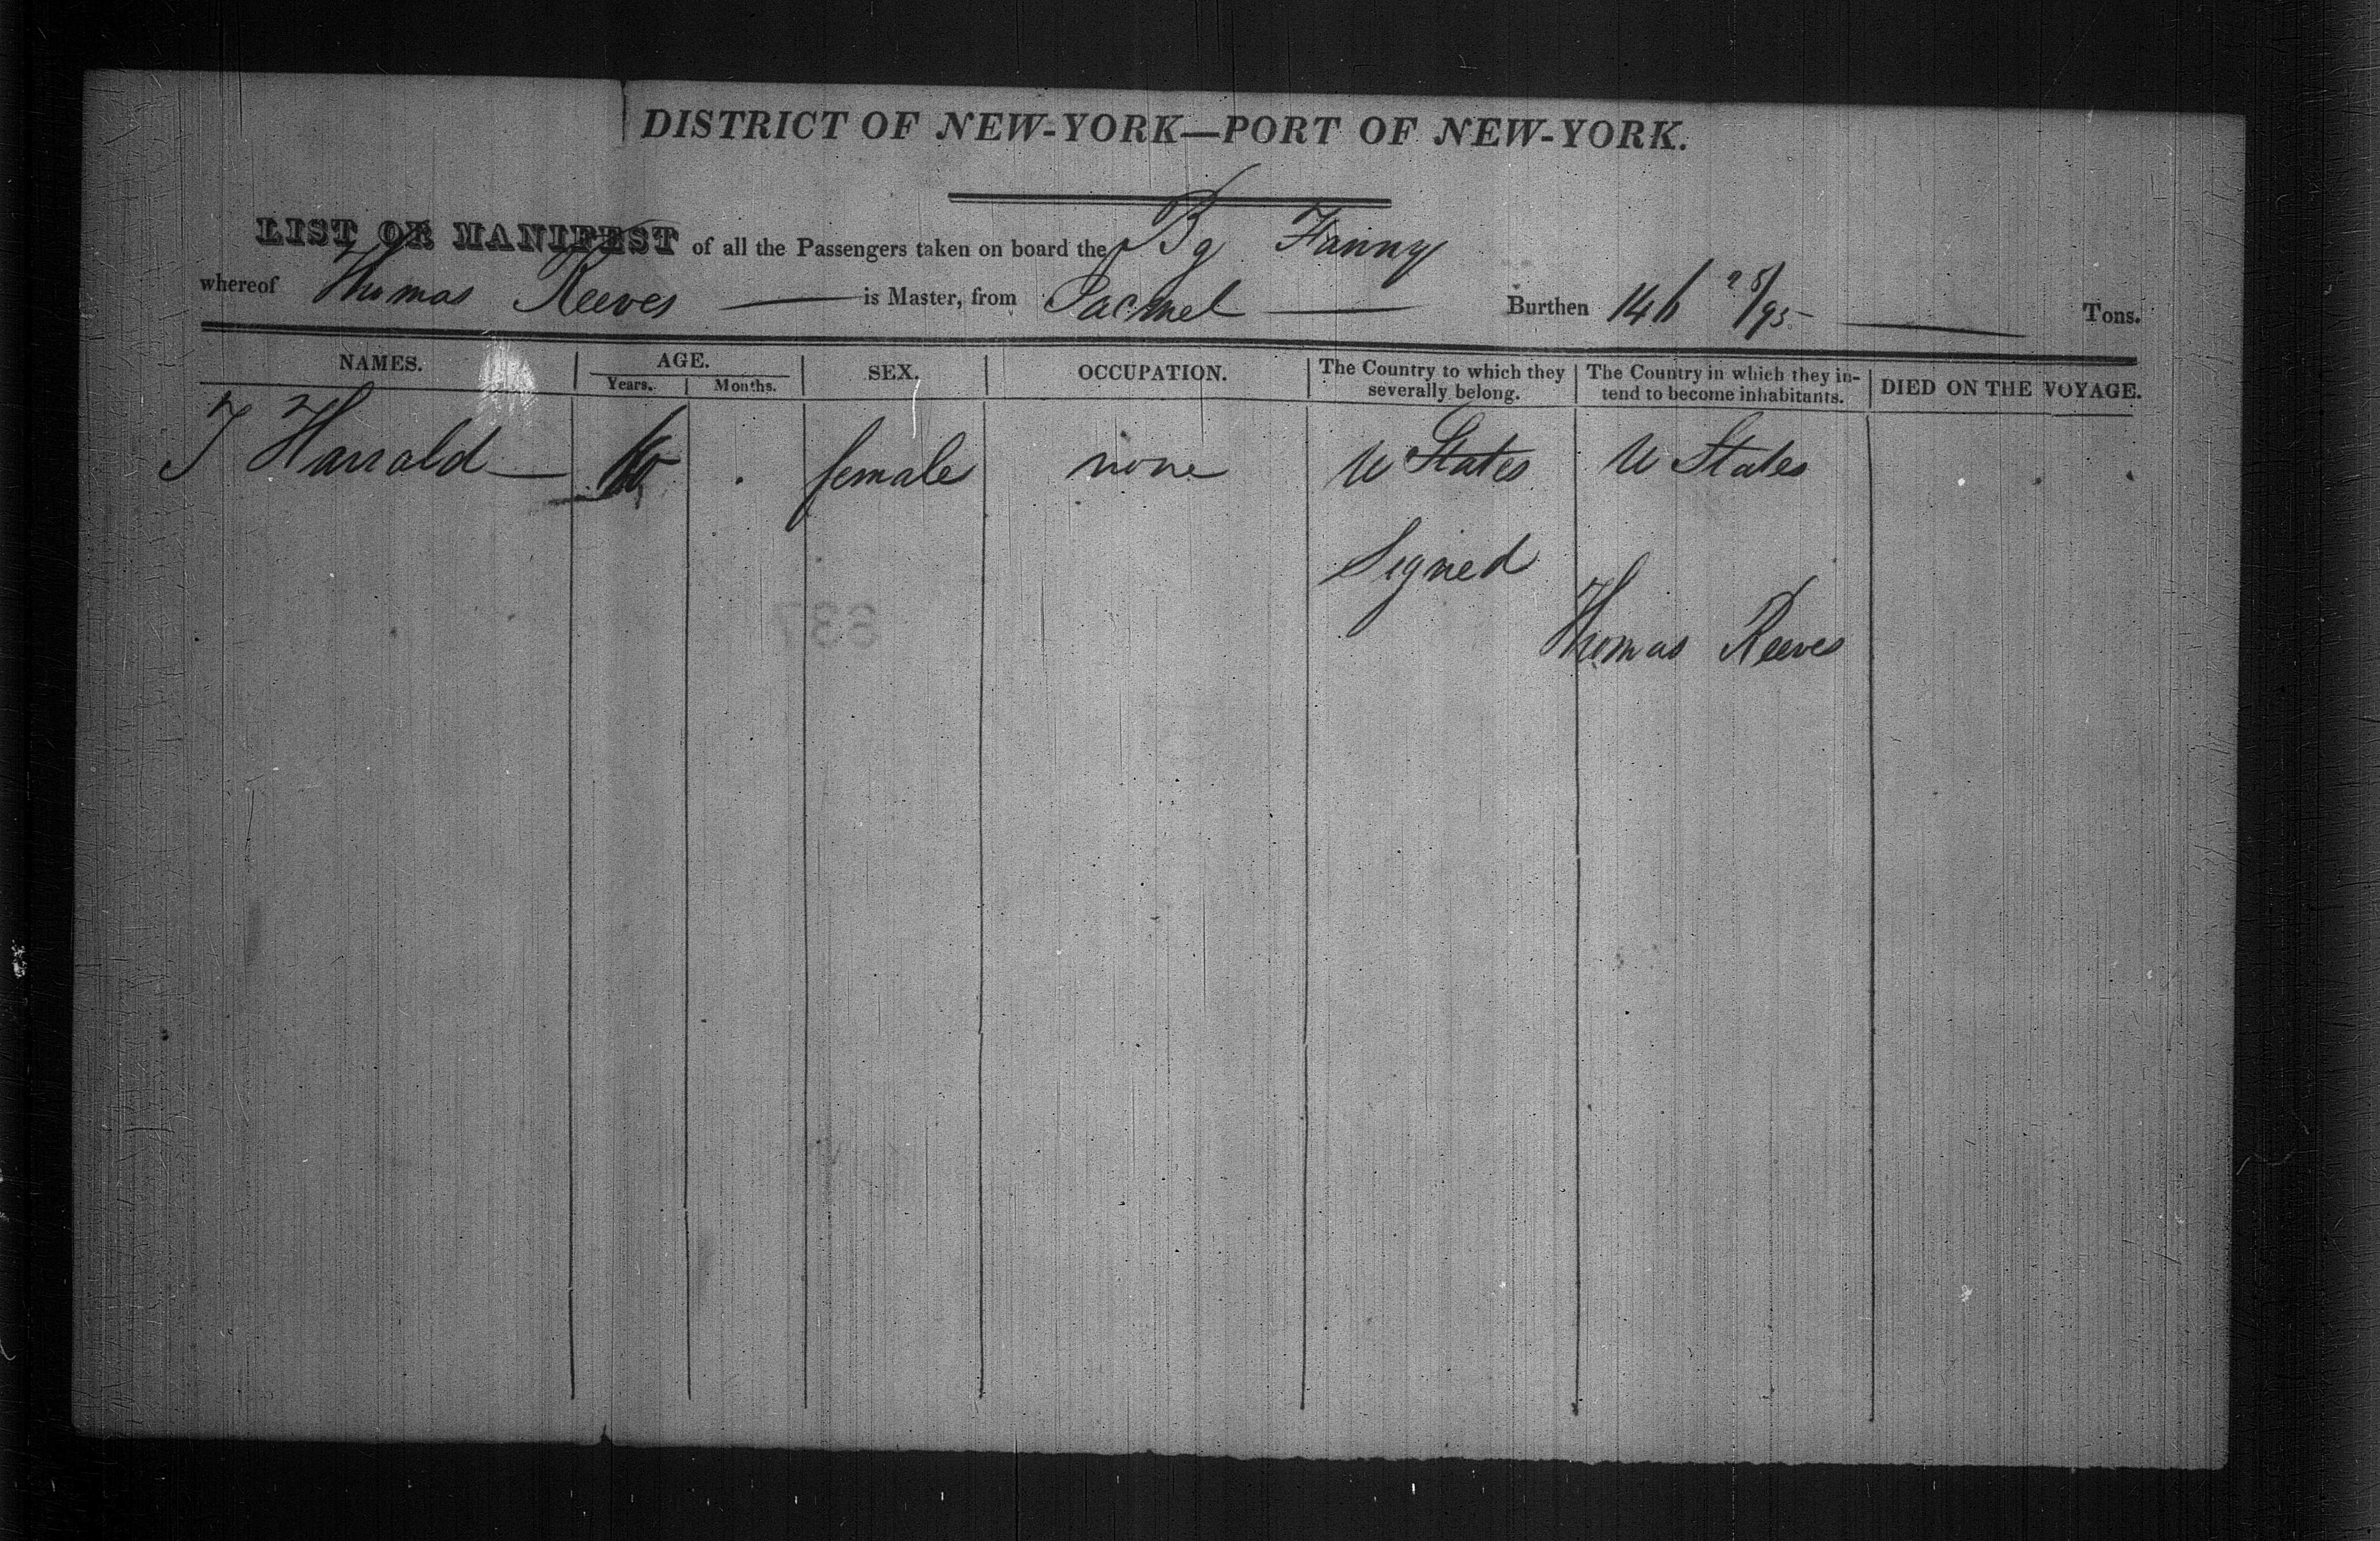 DISTRICT OF NEW-YORK—PORT OF NEW-YORK.
LIST OR MANIFEST of all the Passengers taken on board the Bg Fanny
whereof Thomas Reeves is Master, from Jacmel Burthen 146 28/95 Tons.
NAMES. AGE. SEX. OCCUPATION. The Country to which they severally belong. The Country in which they in-tend to become inhabitants. DIED ON THE VOYAGE.
Years. Months.
J Harrald female none U States U States
Signed
Thomas Reeves
337